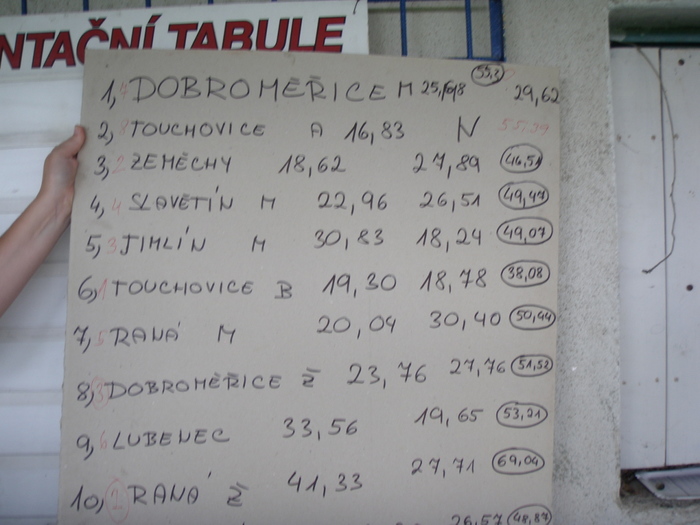 NTAČNÍ TABULE
1, DOBROMĚŘICE M 25,68 55,3 29,62
2, TOUCHOVICE A 16,83 N 55,39
3, 2 ZEMĚCHY 18,62 27,89 46,51
4, 4 SLAVĚTÍN M 22,96 26,51 49,47
5, 3 JIMLÍN M 30,83 18,24 49,07
6, 1 TOUCHOVICE B 19,30 18,78 38,08
7, 5 RANÁ M 20,04 30,40 50,44
8, 3 DOBROMĚŘICE Ž 23,76 27,76 51,52
9, 6 LUBENEC 33,56 19,65 53,21
10, 2 RANÁ Ž 41,33 27,71 69,04
26,57 48,87